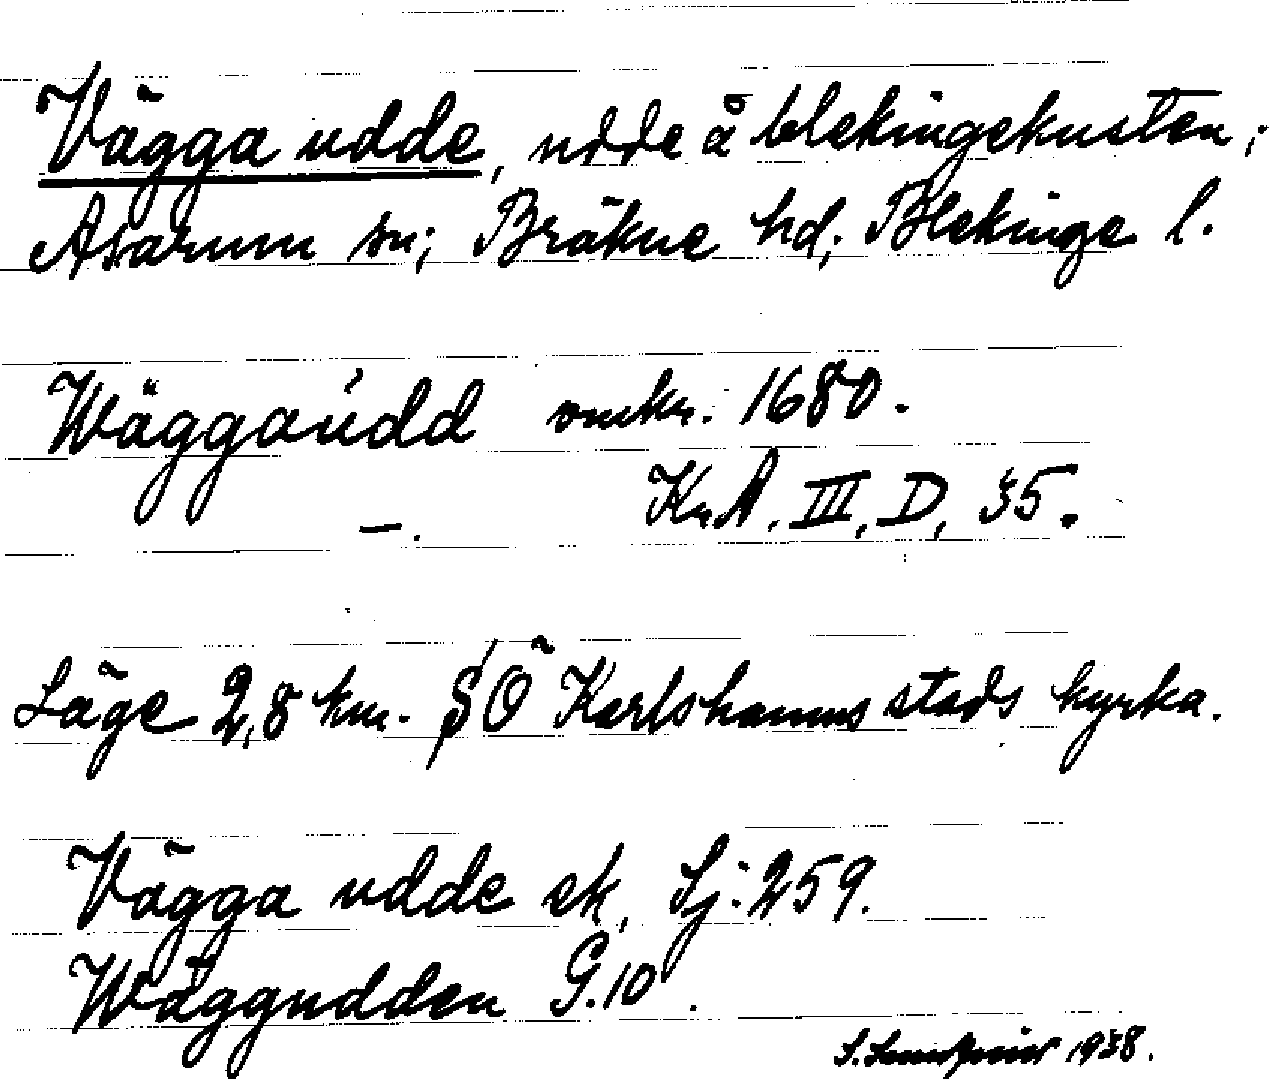 Vägga udde, udde å blekingekusten;
Asarum sn; Bräkne hd; Blekinge l.
Wäggaúdd omkr. 1680.
—. Kr.A. III, D, 35.
Läge 2,8 km. SÖ Karlshamns stads kyrka.
Vägga udde ek, Sj: 259.
Wäggudden G. 10.
1938.